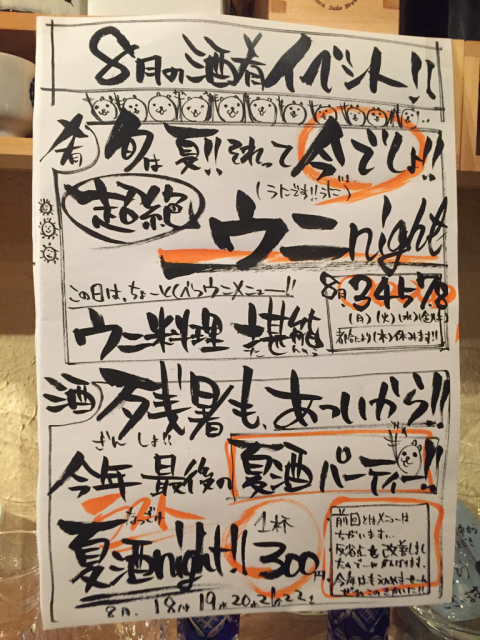 8月の酒肴イベント!!
肴 旬は夏!!それって今でしょ!!
(うにです!!うに)
超絶
ウニnight
この日は、ちょーとくべつウニメニュー!!
8月34578
(月)(火)(水)(金)(土)
都合により(木)休みます!!
ウニ料理 堪能
たんのう
酒 残暑も、あついから!!
ざんしょ!!
今年最後の夏酒パーティー!!
なつざけ
夏酒night!!
1杯
300円
前回とはメニューは
ちがいます…
反省を改善しまし
たので…
今年はもうのめません
8月 18 19 20 21 22